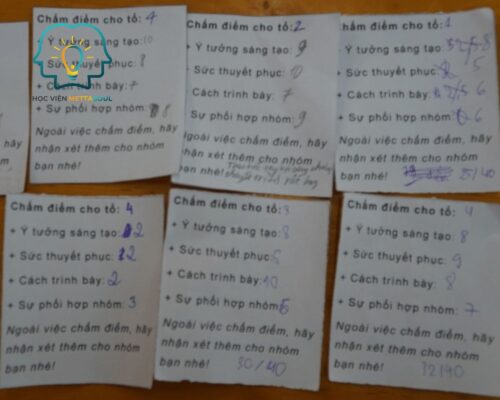 Chấm điểm cho tổ: 4
+ Ý tưởng sáng tạo: 10
+ Sức thuyết phục: 8
+ Cách trình bày: 7
+ Sự phối hợp nhóm: 8
Ngoài việc chấm điểm, hãy
nhận xét thêm cho nhóm
bạn nhé!
HỌC VIỆN METTASOUL
Chấm điểm cho tổ: 2
+ Ý tưởng sáng tạo: 9
+ Sức thuyết phục: 10
+ Cách trình bày: 7
+ Sự phối hợp nhóm: 9
Ngoài việc chấm điểm, hãy
nhận xét thêm cho nhóm
bạn nhé!
Chấm điểm cho tổ: 1
+ Ý tưởng sáng tạo: 8
+ Sức thuyết phục: 5
+ Cách trình bày: 6
+ Sự phối hợp nhóm: 6
Ngoài việc chấm điểm, hãy
nhận xét thêm cho nhóm
bạn nhé! 25/40
Chấm điểm cho tổ: 4
+ Ý tưởng sáng tạo: 2
+ Sức thuyết phục: 2
+ Cách trình bày: 2
+ Sự phối hợp nhóm: 3
Ngoài việc chấm điểm, hãy
nhận xét thêm cho nhóm
bạn nhé!
Chấm điểm cho tổ: 3
+ Ý tưởng sáng tạo: 8
+ Sức thuyết phục:
+ Cách trình bày: 10
+ Sự phối hợp nhóm: 6
Ngoài việc chấm điểm, hãy
nhận xét thêm cho nhóm
bạn nhé! 30/40
Chấm điểm cho tổ: 4
+ Ý tưởng sáng tạo: 8
+ Sức thuyết phục: 9
+ Cách trình bày: 8
+ Sự phối hợp nhóm: 7
Ngoài việc chấm điểm, hãy
nhận xét thêm cho nhóm
bạn nhé! 32/40